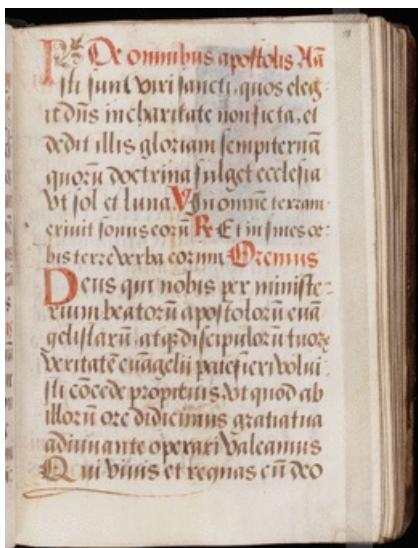 De omnibus apostolis Añ
Isti sunt viri sancti, quos eleg
it dñs in charitate non ficta, et
dedit illis gloriam sempiternã
quorũ doctrina fulget ecclesia
Vt sol et luna V In omnem terram
exiuit sonus eorũ R Et in fines or
bis terre verba eorum Oremus
Deus qui nobis per ministe-
rium beatorũ apostolorũ euã
gelistarũ atqꝫ discipulorũ tuoꝝ
veritatẽ euãgelij patefieri volui
sti cõcede propitius Vt quod ab
illorũ ore didicimus gratia tua
adiuuante operari Valeamus
Qui viuis et regnas cũ deo